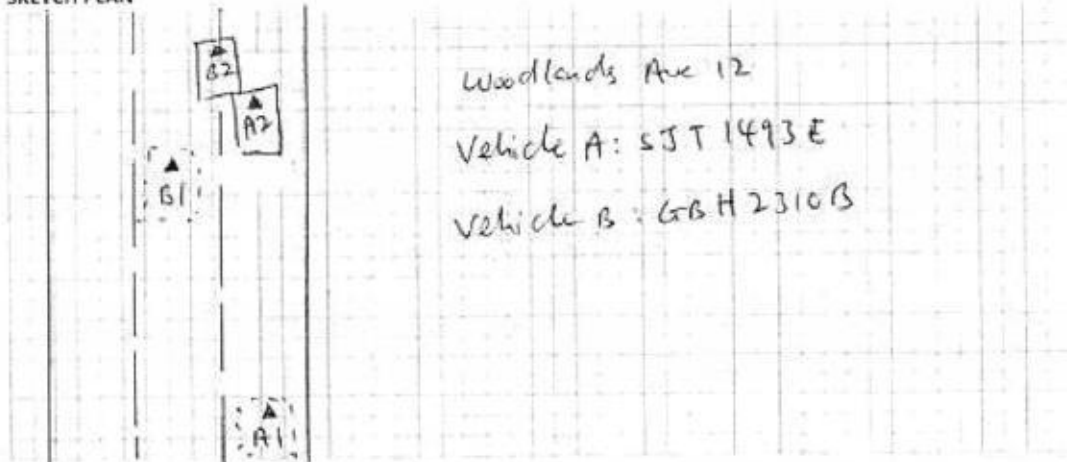 SKETCH PLAN
B2
A2
B1
A1
Woodlands Ave 12
Vehicle A: SJT 1493E
Vehicle B: GBH 2310B